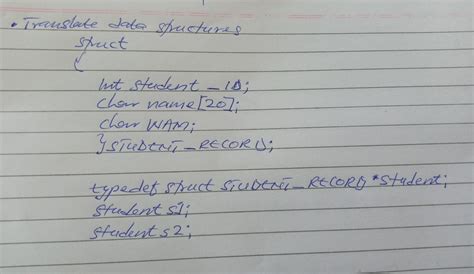 • Translate data structures
struct
{
int student_ID;
char name[20];
char WAM;
}STUDENT_RECORD;
typedef struct STUDENT_RECORD *Student;
student s1;
student s2;